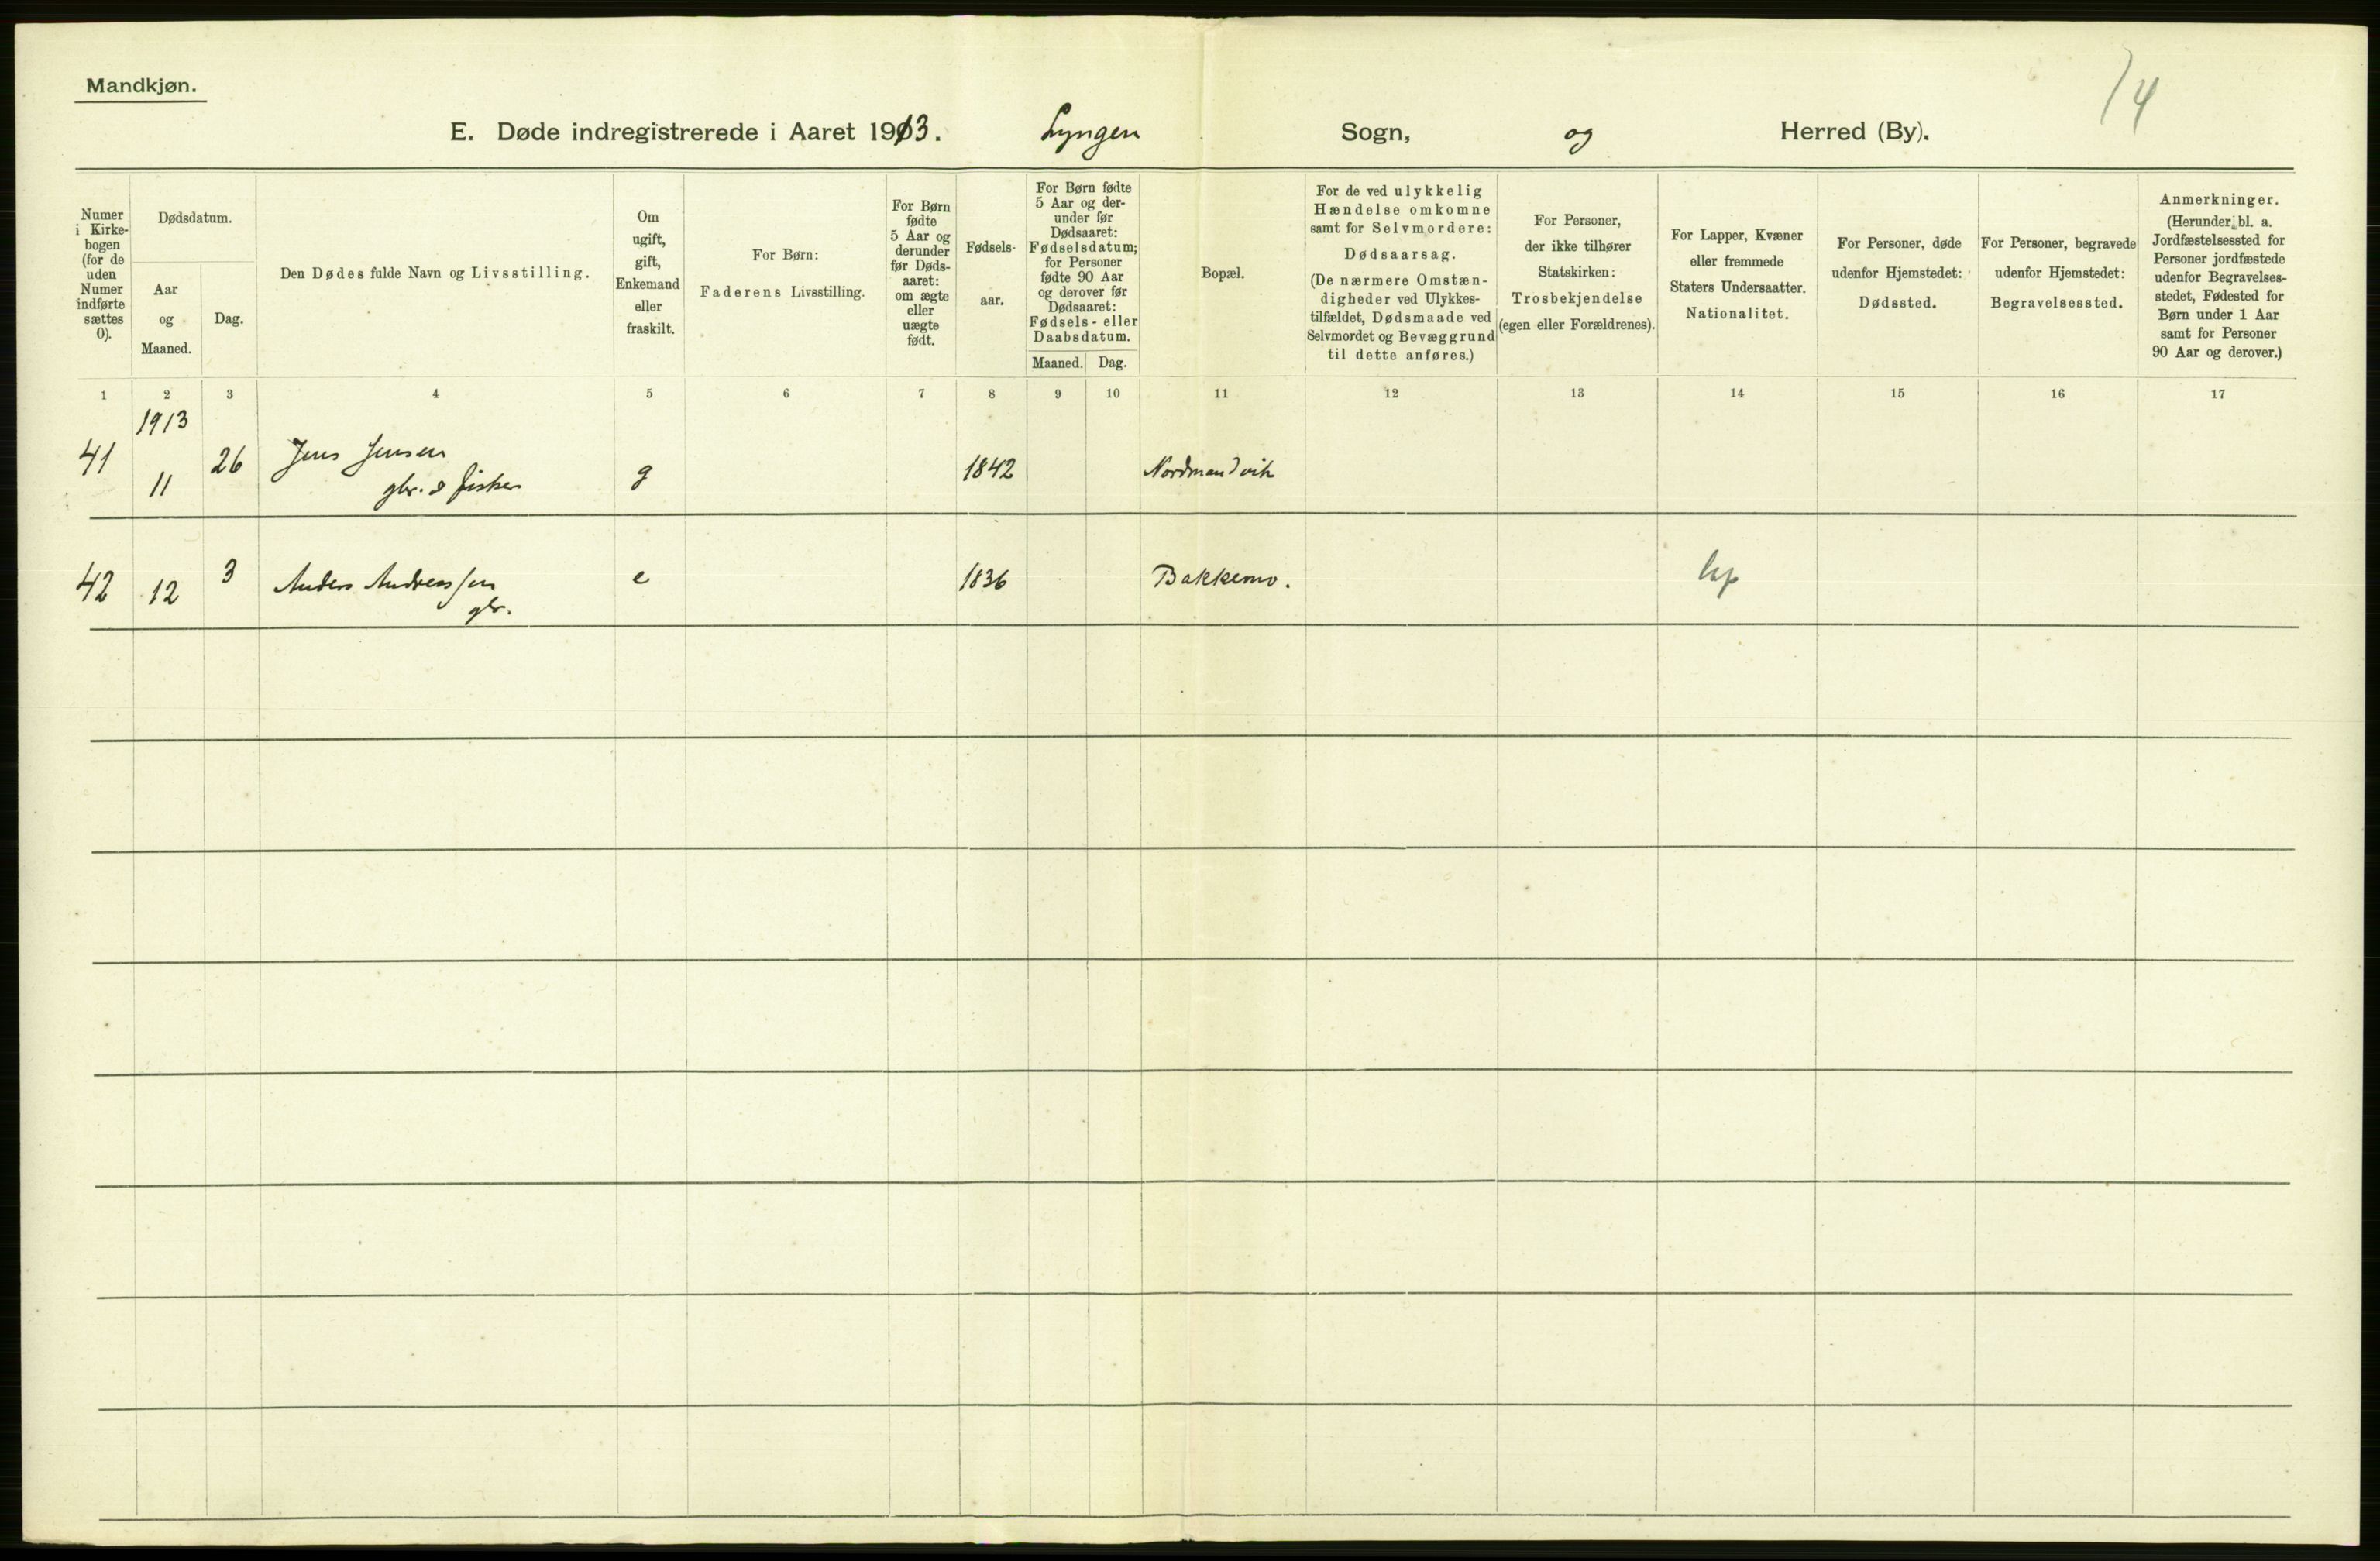 Mandkjøn.
74
E. Døde indregistrerede i Aaret 1913. Lyngen Sogn, og Herred (By).
Numer
i Kirke-
bogen
(for de
uden
Numer
indførte
sættes
0).
Dødsdatum.
Aar
og
Maaned.
Dag.
Den Dødes fulde Navn og Livsstilling.
Om
ugift,
gift,
Enkemand
eller
fraskilt.
For Børn:
Faderens Livsstilling.
For Børn
fødte
5 Aar og
derunder
før Døds-
aaret:
om ægte
eller
uægte
født.
Fødsels-
aar.
For Børn fødte
5 Aar og der-
under før
Dødsaaret:
Fødselsdatum;
for Personer
fødte 90 Aar
og derover før
Dødsaaret:
Fødsels- eller
Daabsdatum.
Maaned. Dag.
Bopæl.
For de ved ulykkelig
Hændelse omkomne
samt for Selvmordere:
Dødsaarsag.
(De nærmere Omstæn-
digheder ved Ulykkes-
tilfældet, Dødsmaade ved
Selvmordet og Bevæggrund
til dette anføres.)
For Personer,
der ikke tilhører
Statskirken:
Trosbekjendelse
(egen eller Forældrenes).
For Lapper, Kvæner
eller fremmede
Staters Undersaatter.
Nationalitet.
For Personer, døde
udenfor Hjemstedet:
Dødssted.
For Personer, begravede
udenfor Hjemstedet:
Begravelsessted.
Anmerkninger.
(Herunder bl. a.
Jordfæstelsessted for
Personer jordfæstede
udenfor Begravelses-
stedet, Fødested for
Børn under 1 Aar
samt for Personer
90 Aar og derover.)
1 2 3 4 5 6 7 8 9 10 11 12 13 14 15 16 17
1913
41 11 26 Jens Jensen g 1842 Nordmandvik
gbr. & fisker
42 12 3 Anders Andreassen e 1836 Bakkemo. lap
gbr.